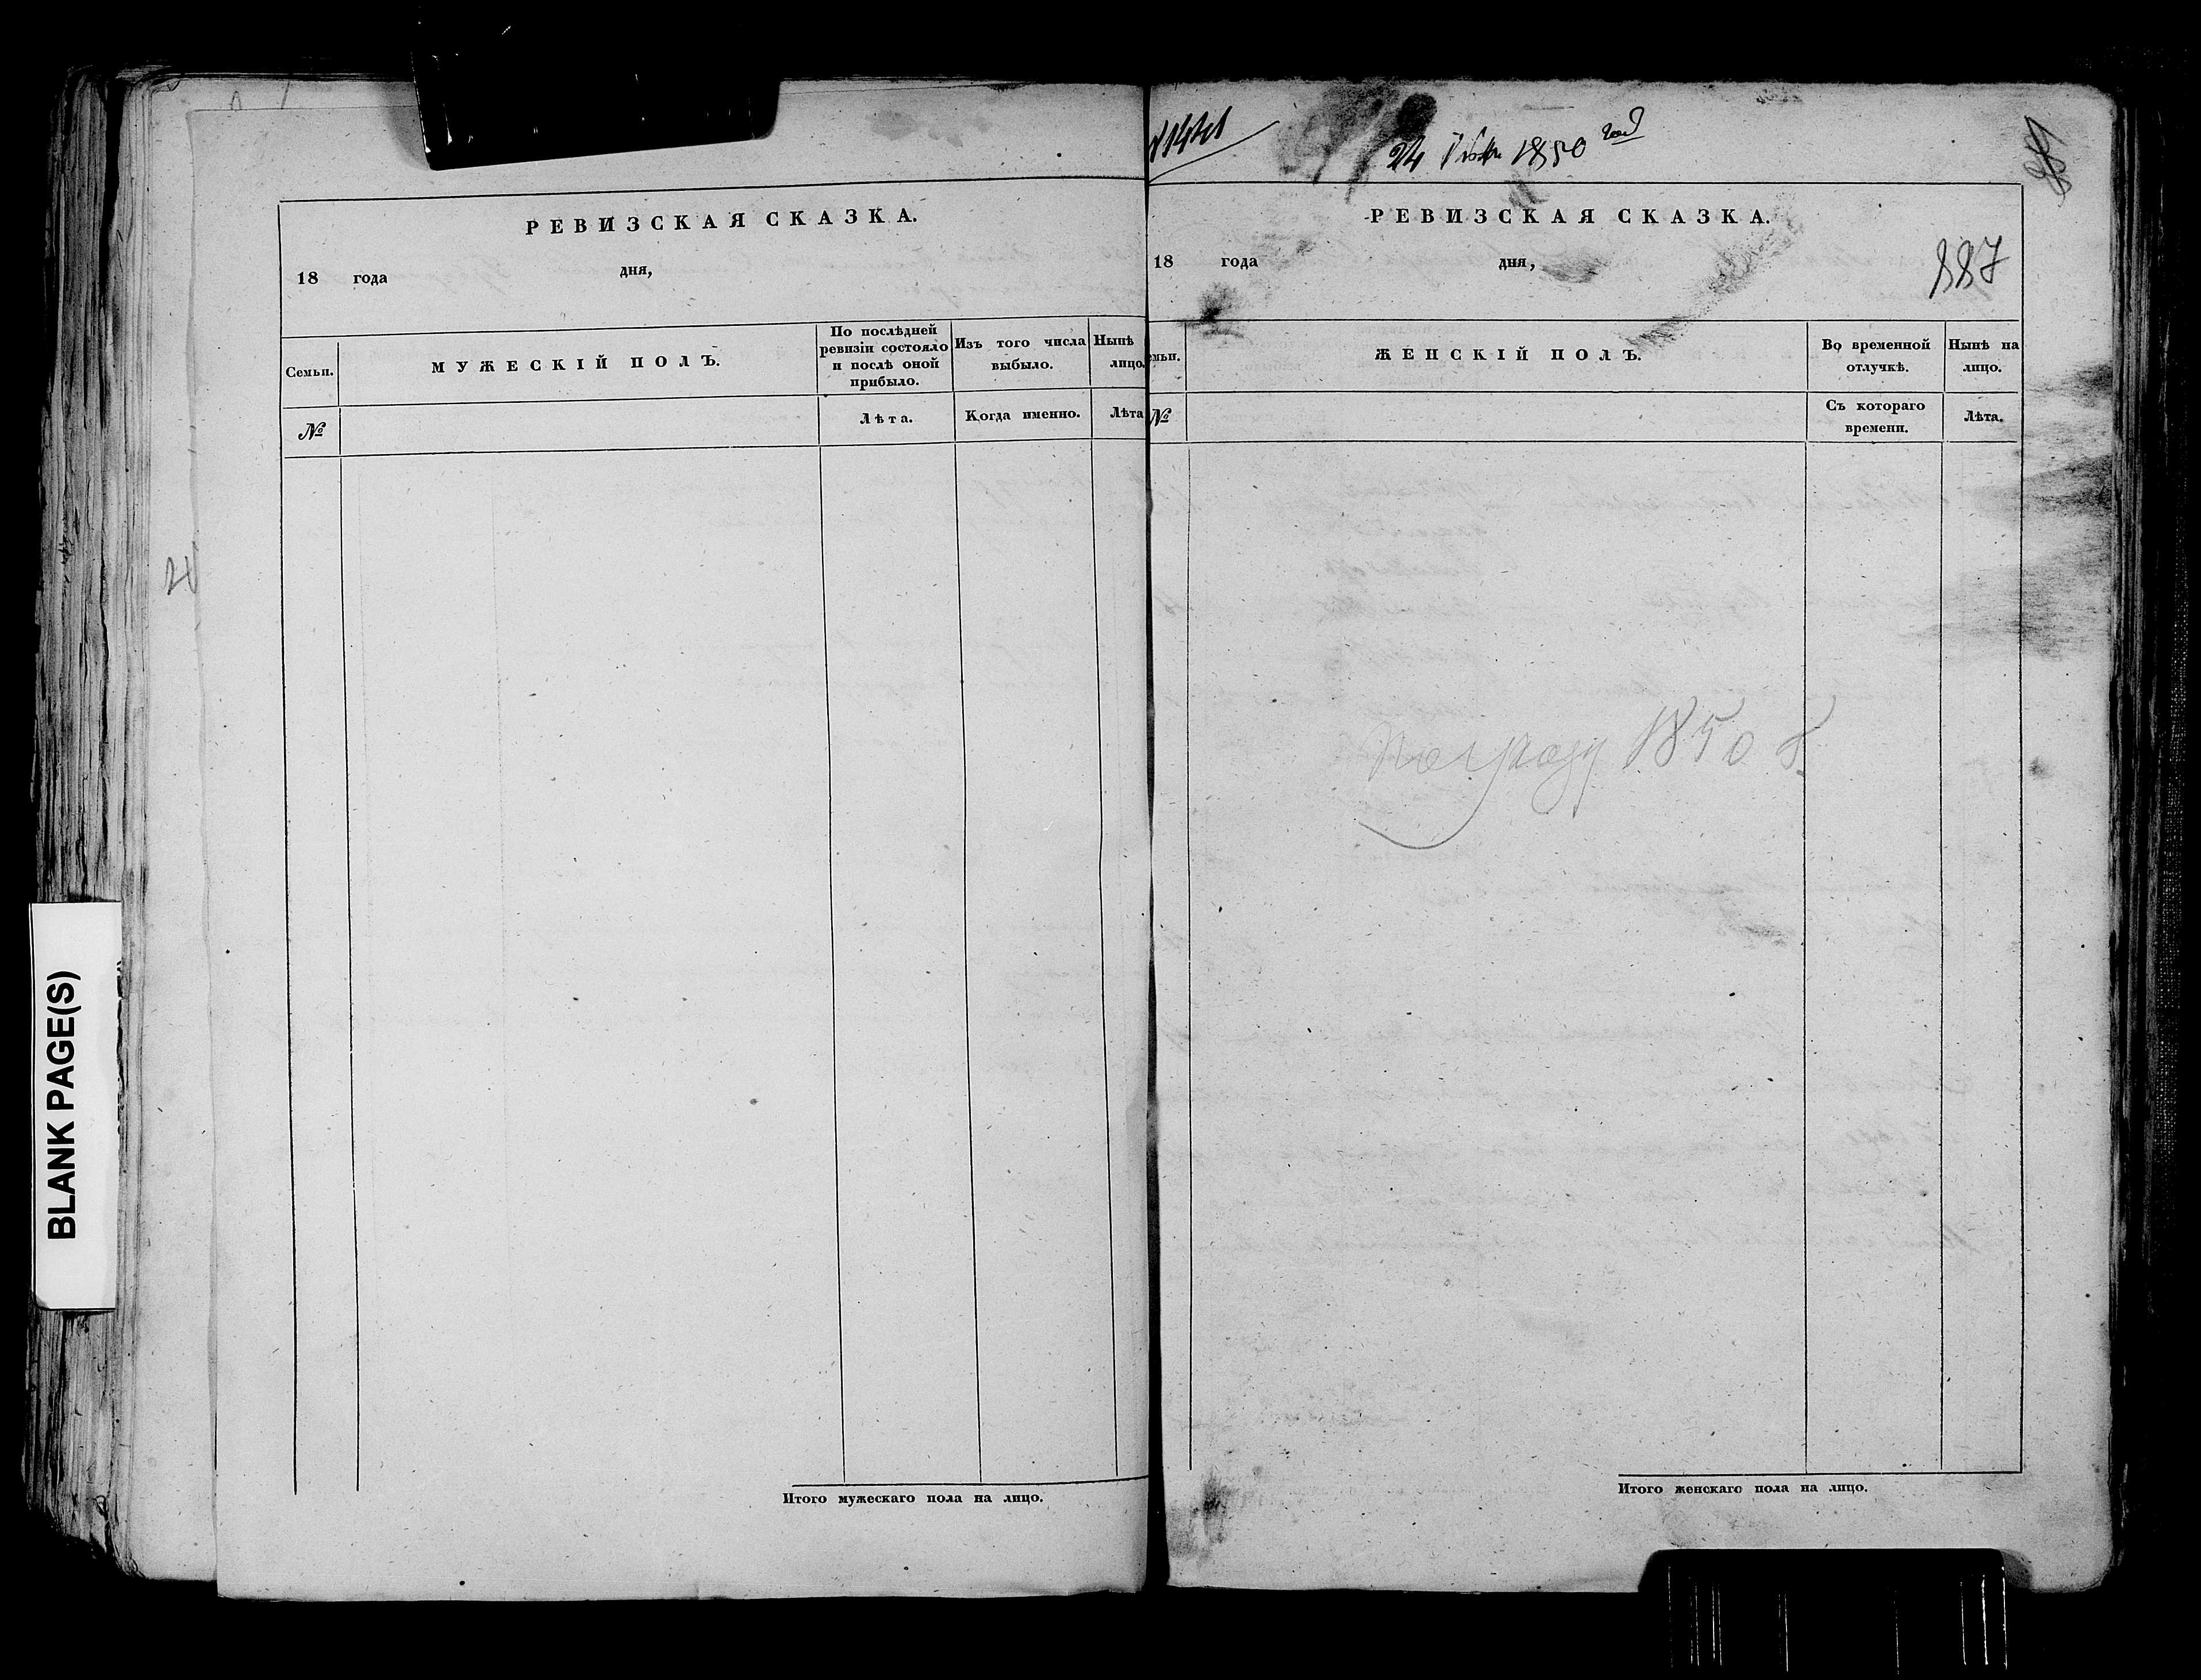 BLANK PAGE(S)
РЕВИЗСКАЯ СКАЗКА.
18 года дня,
Семьи.
МУЖЕСКІЙ ПОЛЪ.
По послѣдней
ревизіи состояло
и послѣ оной
прибыло.
Изъ того числа
выбыло.
Нынѣ
лицо.
№
Лѣта.
Когда именно.
Лѣта
Итого мужескаго пола на лицо.
24
1850
РЕВИЗСКАЯ СКАЗКА.
18 года дня,
887
емьи.
ЖЕНСКІЙ ПОЛЪ.
Во временной
отлучкѣ.
Нынѣ на
лицо.
№
Съ котораго
времени.
Лѣта.
1850 г.
Итого женскаго пола на лицо.